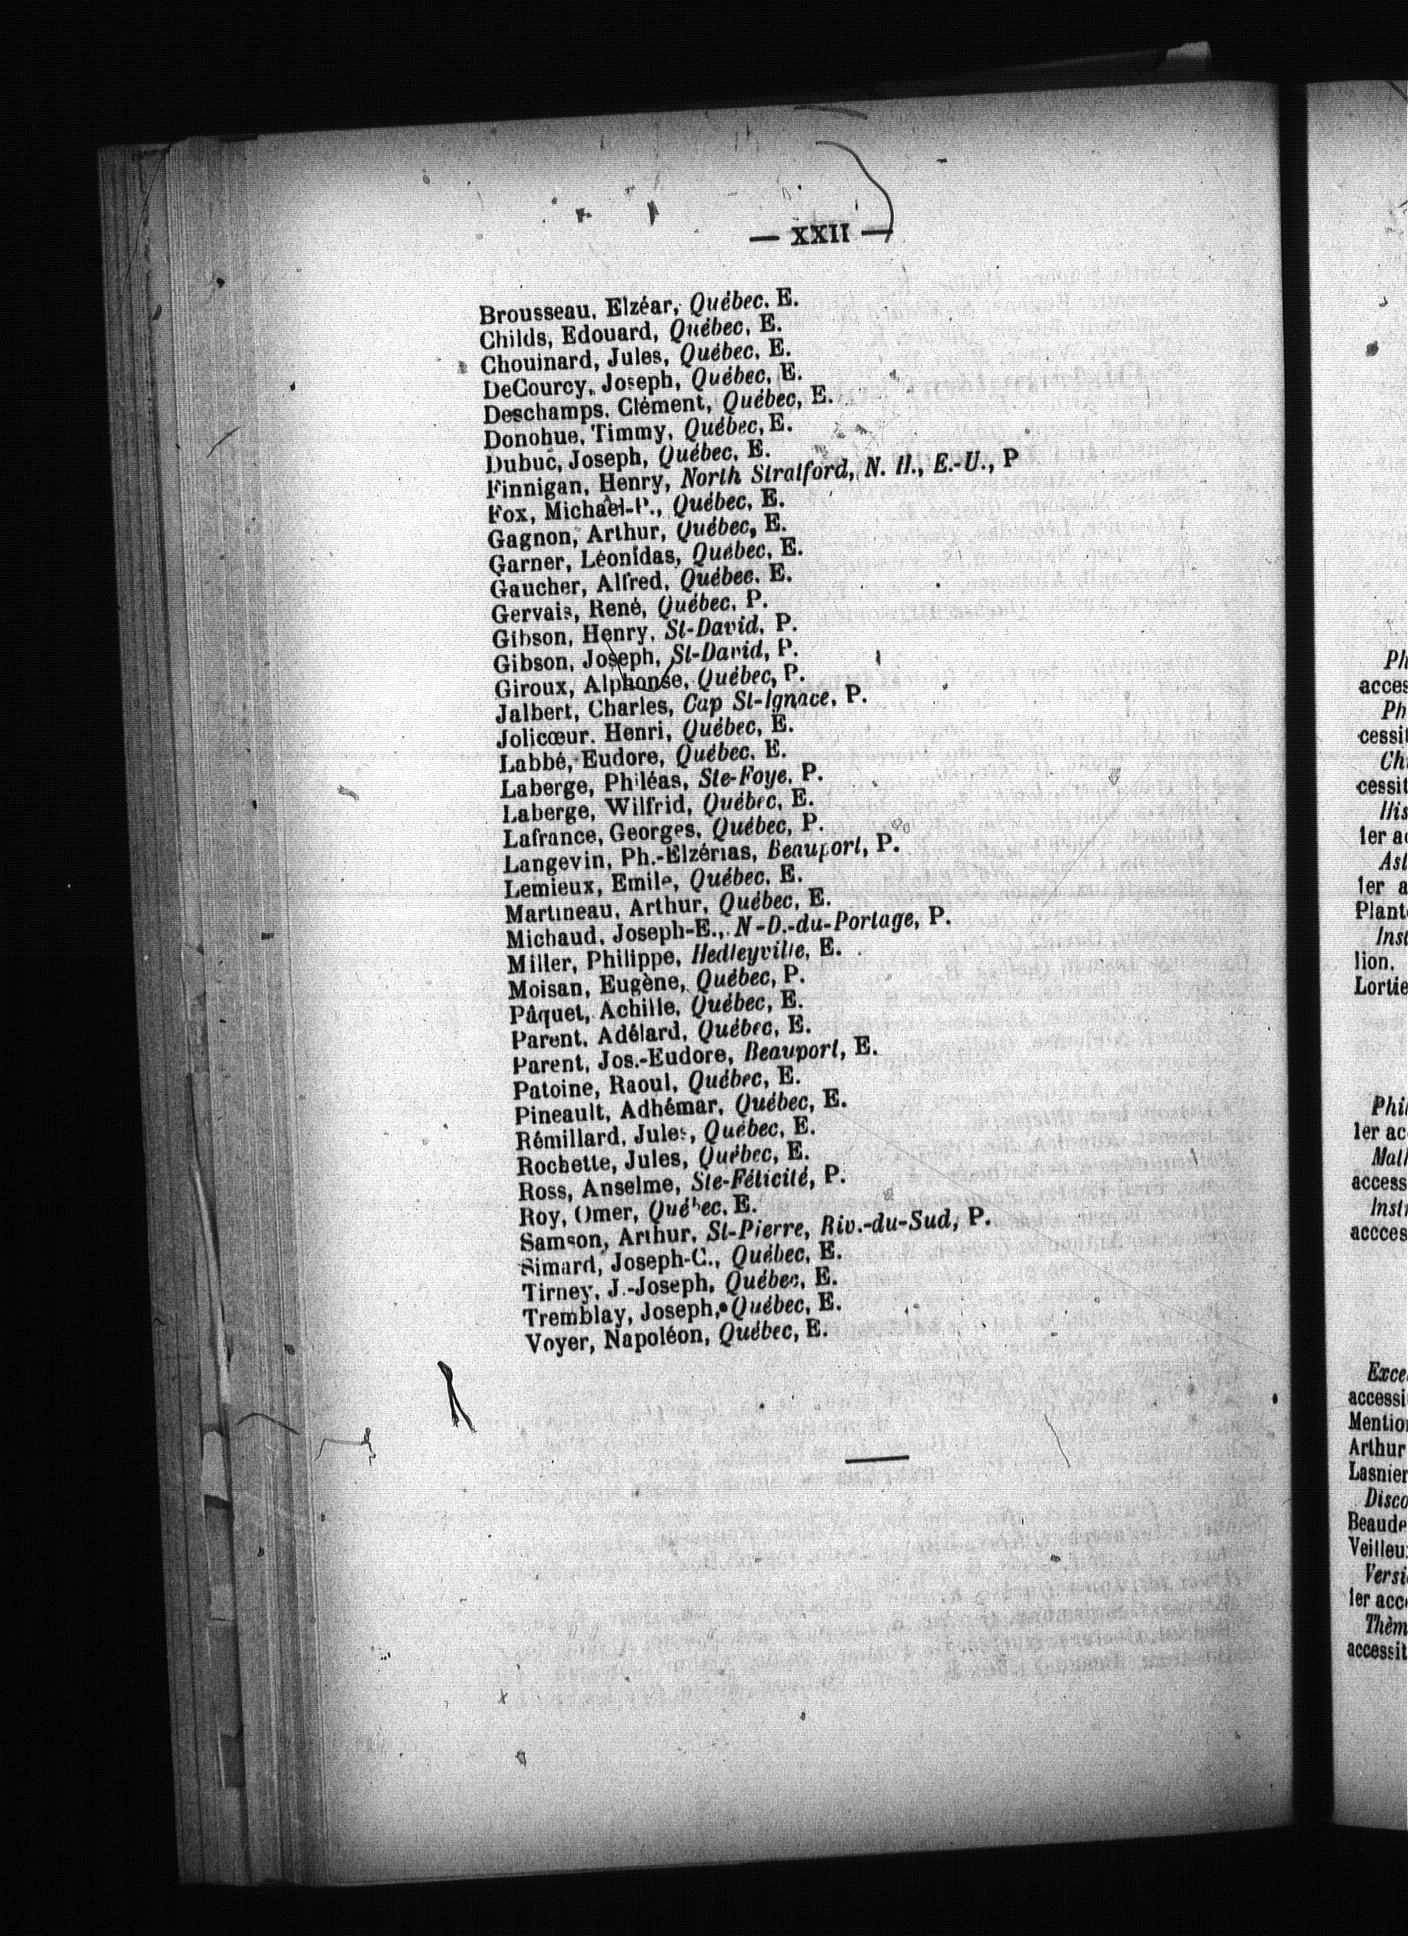 — XXII —
Brousseau, Elzéar, Québec, E.
Childs, Edouard, Québec, E.
Chouinard, Jules, Québec, E.
DeCourcy, Joseph, Québec, E.
Deschamps, Clément, Québec, E.
Donohue, Timmy, Québec, E.
Dubuc, Joseph, Québec, E.
Finnigan, Henry, North Stratford, N. H., E.-U., P
Fox, Michael-P., Québec, E.
Gagnon, Arthur, Québec, E.
Garner, Léonidas, Québec, E.
Gaucher, Alfred, Québec, E.
Gervais, René, Québec, P.
Gibson, Henry, St-David, P.
Gibson, Joseph, St-David, P.
Giroux, Alphonse, Québec, P.
Jalbert, Charles, Cap St-Ignace, P.
Jolicœur, Henri, Québec, E.
Labbé, Eudore, Québec, E.
Laberge, Philéas, Ste-Foye, P.
Laberge, Wilfrid, Québec, E.
Lafrance, Georges, Québec, P.
Langevin, Ph.-Elzérias, Beauport, P.
Lemieux, Emile, Québec, E.
Martineau, Arthur, Québec, E.
Michaud, Joseph-E., N-D.-du-Portage, P.
Miller, Philippe, Hedleyville, E.
Moisan, Eugène, Québec, P.
Pâquet, Achille, Québec, E.
Parent, Adélard, Québec, E.
Parent, Jos.-Eudore, Beauport, E.
Patoine, Raoul, Québec, E.
Pineault, Adhémar, Québec, E.
Rémillard, Jules, Québec, E.
Rochette, Jules, Québec, E.
Ross, Anselme, Ste-Félicité, P.
Roy, Omer, Québec, E.
Samson, Arthur, St-Pierre, Riv.-du-Sud, P.
Simard, Joseph-C., Québec, E.
Tirney, J.-Joseph, Québec, E.
Tremblay, Joseph, Québec, E.
Voyer, Napoléon, Québec, E.
Ph
acces
Ph
cessit
cessit
1er ac
1er a
Plant
lion.
Lortie
Phil
1er ac
access
accces
accessi
Mention
Arthur
Lasnier
Beaude
1er acc
accessit